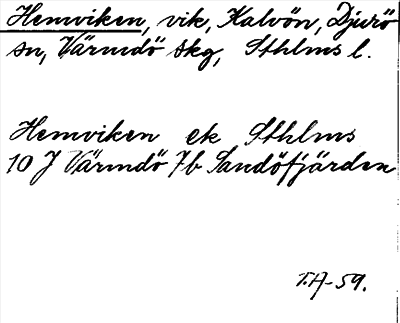 Hemviken, vik, Kalvön, Djurö
sn, Värmdö skg, Sthlms l.
Hemviken ek Sthlms
10 J Värmdö 7b Sandöfjärden
T.A-59.